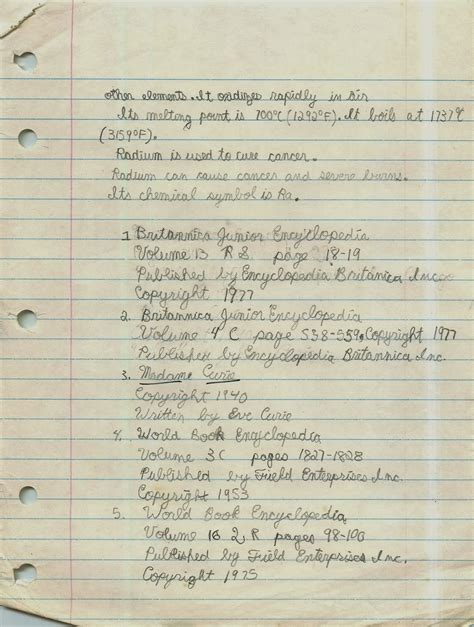 other elements. It oxidizes rapidly in air
Its melting point is 700°C (1292°F). It boils at 1737°C
(3159°F).
Radium is used to cure cancer.
Radium can cause cancer and severe burns.
Its chemical symbol is Ra.
1. Britannica Junior Encyclopedia
Volume 13 R S page 18-19
Published by Encyclopedia Britanica Inc.
Copyright 1977
2. Britannica Junior Encyclopedia
Volume 4 C page 538-539. Copyright 1977
Publisher by Encyclopedia Britannica Inc.
3. Madame Curie
Copyright 1940
Written by Eve Curie
4. World Book Encyclopedia
Volume 3C pages 1827-1828
Published by Field Enterprises Inc.
Copyright 1953
5. World Book Encyclopedia
Volume 16 Q R pages 98-100
Published by Field Enterprises Inc.
Copyright 1975